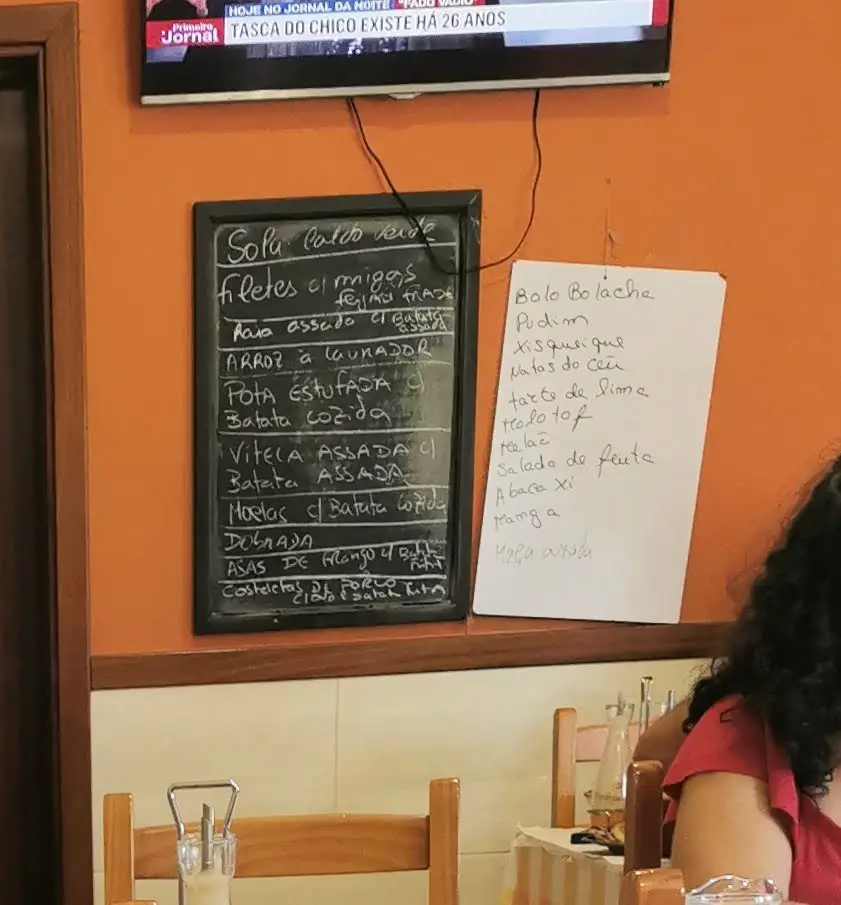 HOJE NO JORNAL DA NOITE "FADO VADIO"
Primeiro Jornal
TASCA DO CHICO EXISTE HÁ 26 ANOS
Sopa: Caldo verde
filetes c/ migas
feijão FRADE
Raia assada c/ Batata
assada
ARROZ à LAVRADOR
POTA ESTUFADA c/
Batata cozida
VITELA ASSADA c/
Batata ASSADA
Moelas c/ Batata cozida
DOBRADA
ASAS DE frango c/ Batata
frita
Costeletas DE PORCO
c/ovo e batata frita
Bolo Bolacha
Pudim
xisqueique
Natas do céu
tarte de lima
Molotof
Melão
Salada de fruta
Abacaxi
Manga
Maça assada